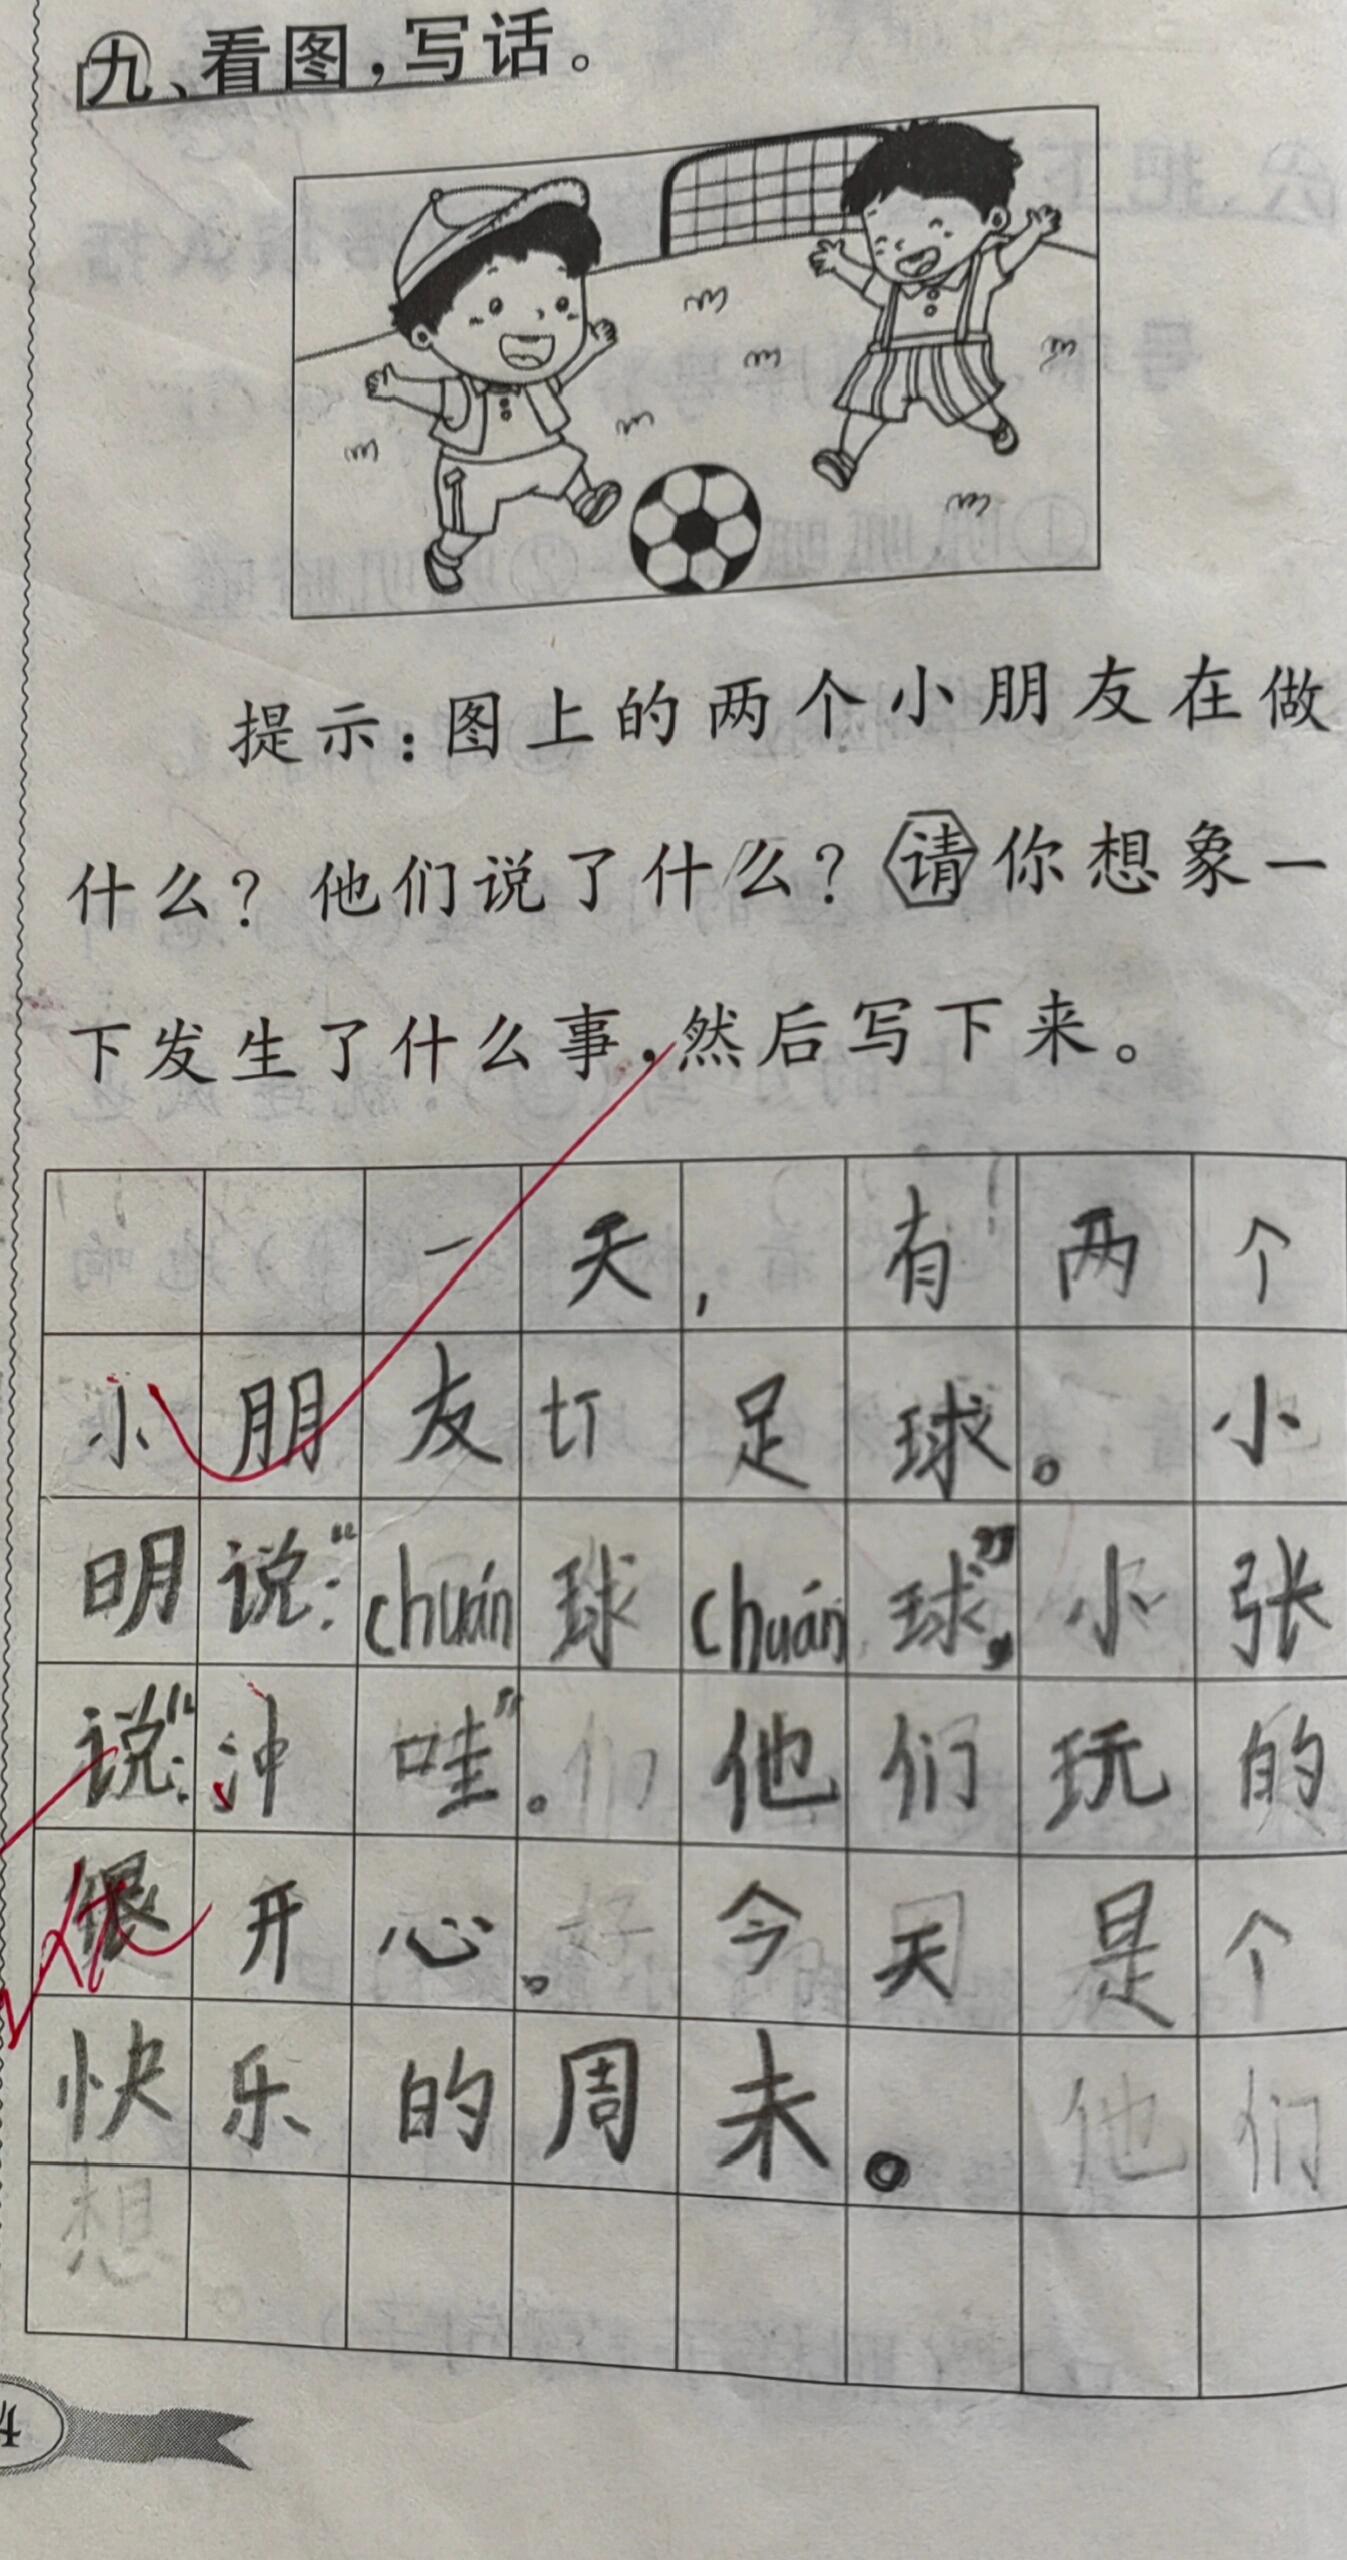 九、看图,写话。
提示:图上的两个小朋友在做
什么?他们说了什么?请你想象一
下发生了什么事,然后写下来。
一天,有两个
小朋友
足球。小
明说:“chuán球chuán球”,小张
说:“冲哇”。他们玩的
很开心。今天是个
快乐的周末。他们
想